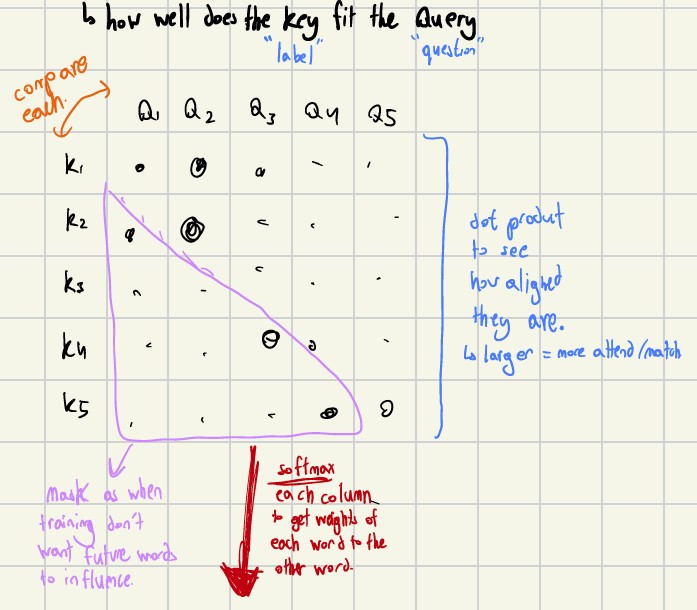 ↳ how well does the key fit the Query
"label" "question"
compare
each.
Q1 Q2 Q3 Q4 Q5
k1
k2
k3
k4
k5
dot product
to see
how aligned
they are.
↳ larger = more attend/match
mask as when
training don't
want future words
to influnce.
softmax
each column
to get weights of
each word to the
other word.